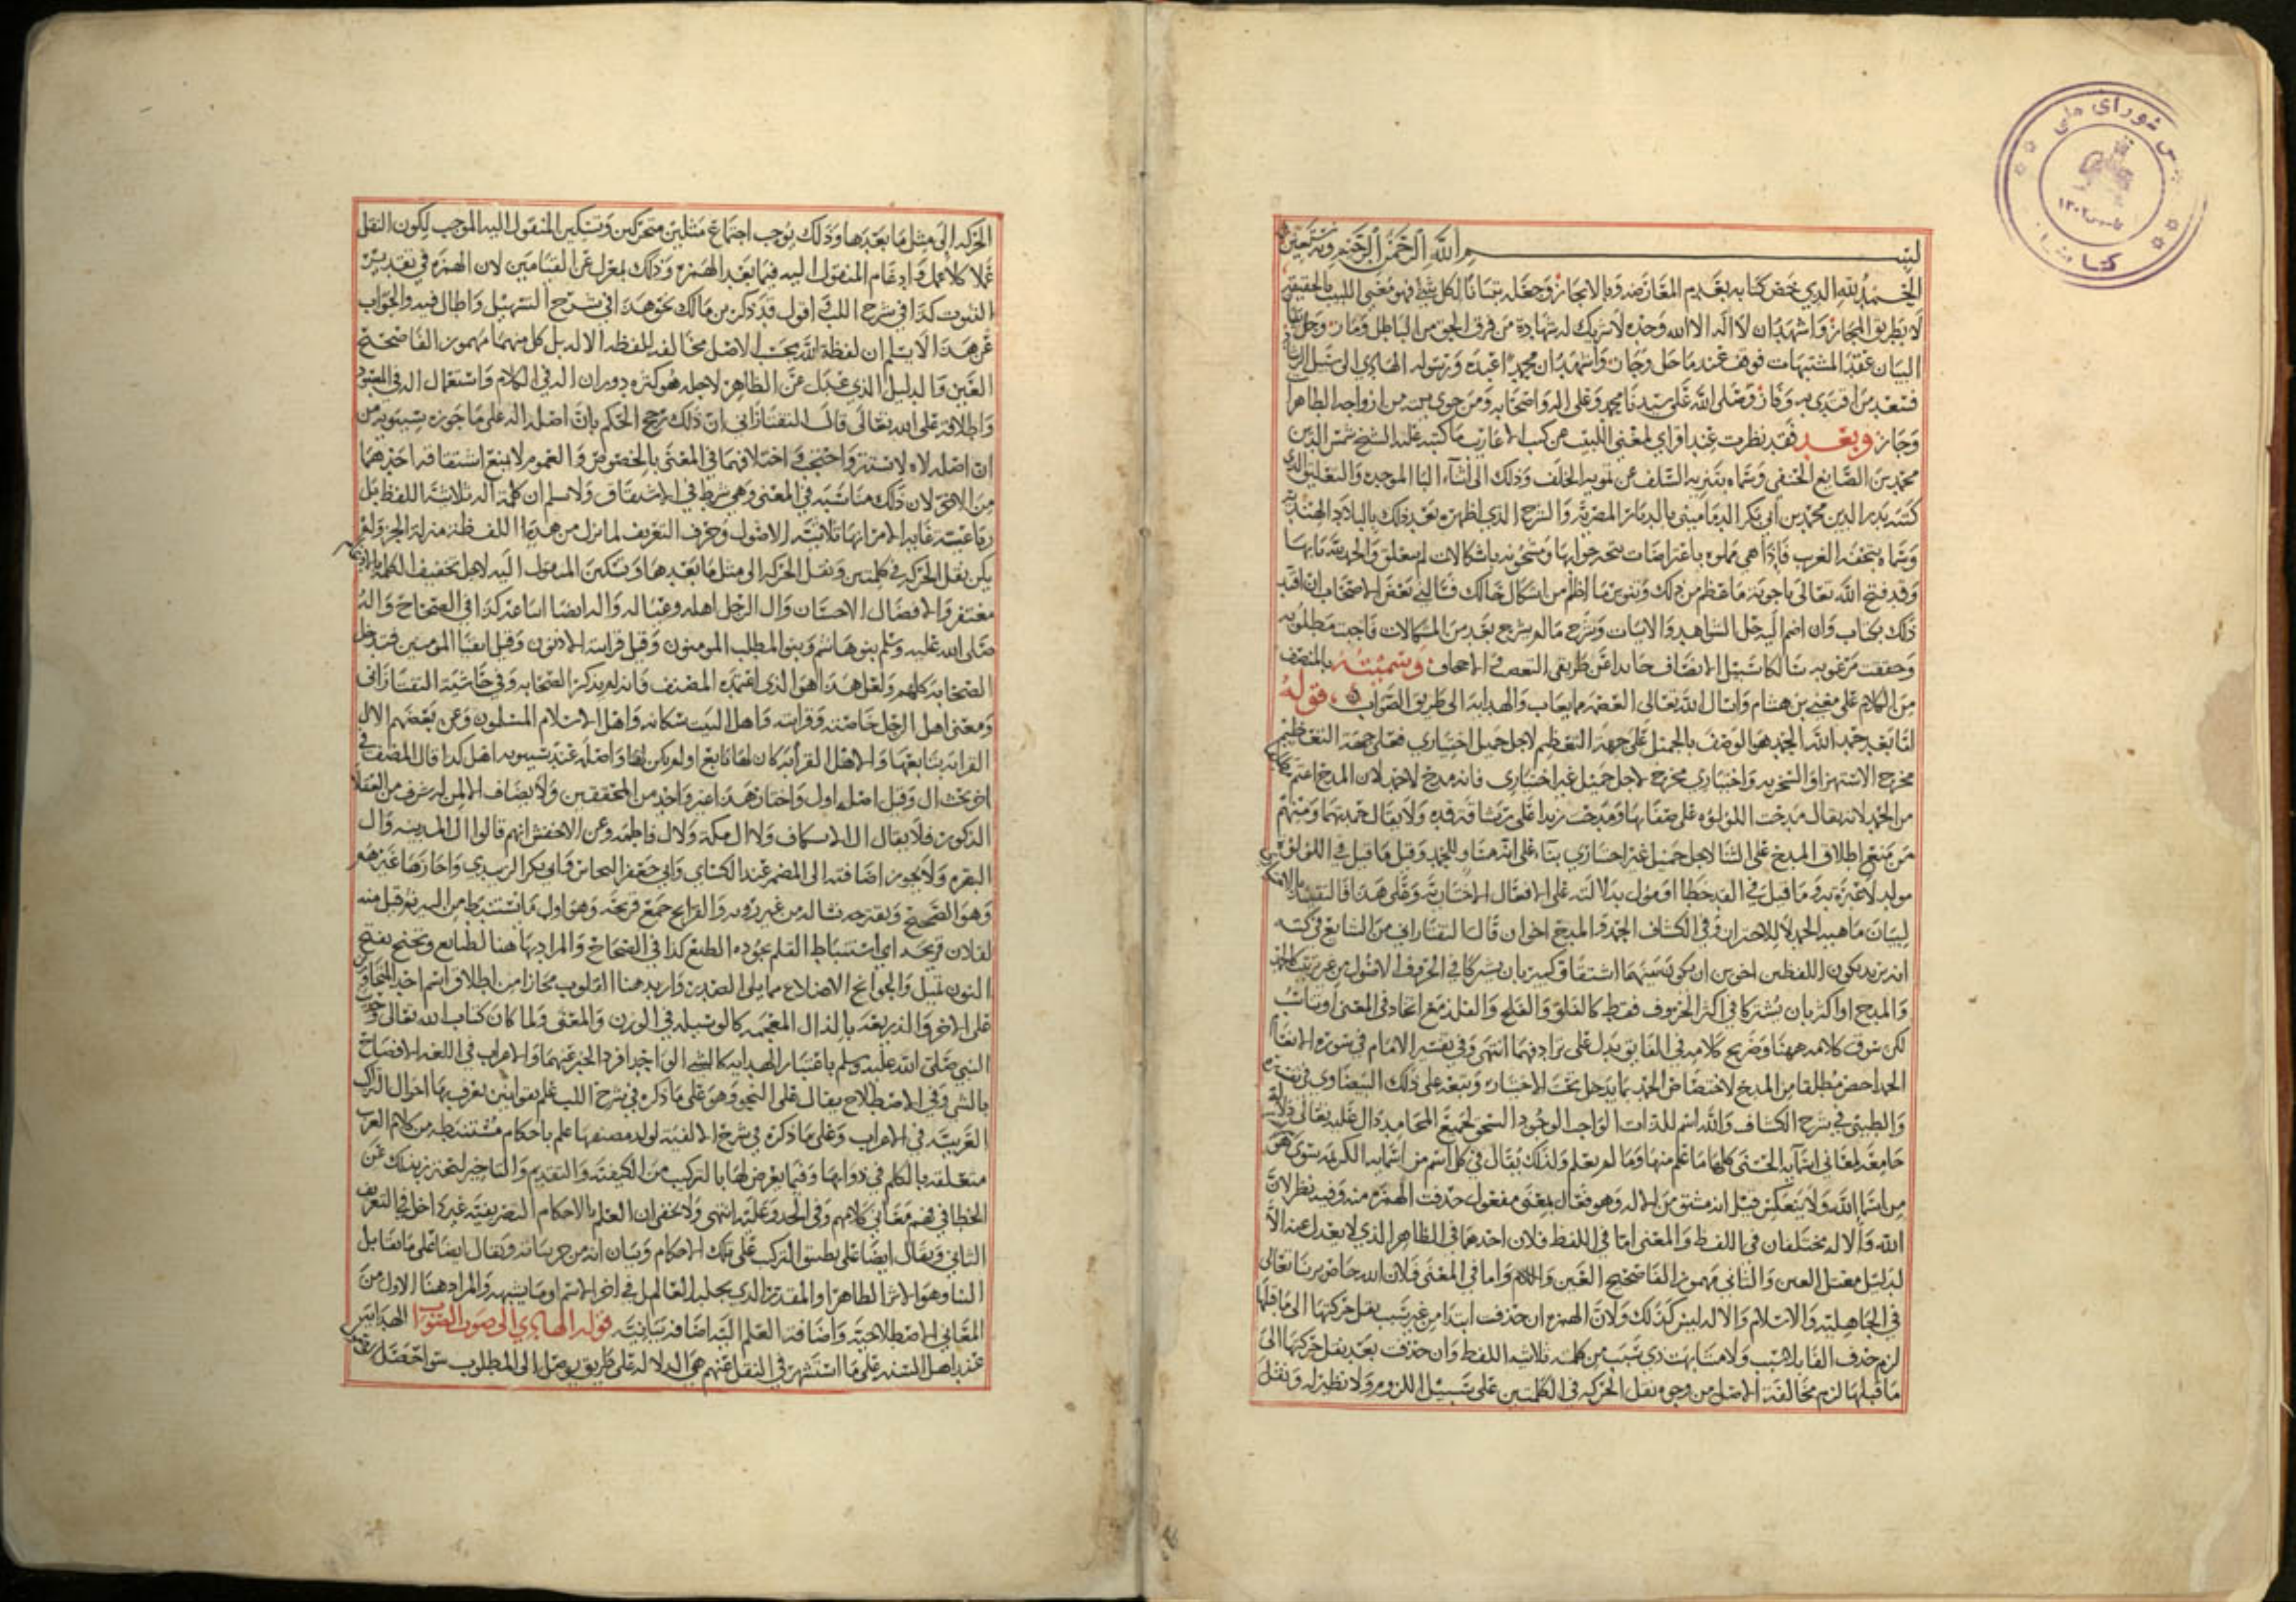 بسم الله الرحمن الرحيم وبه نستعين
الحمد لله الذي خص كتابه بعدم المعارضه وبالاعجاز وجعله تبيانا لكل شيء فهو مغني اللبيب بالحقيقة
لا بطريق المجاز واشهد ان لا اله الا الله وحده لا شريك له شهادة من فرق الحق من الباطل وماز وحل
البيان عقد المشتبهات فوقف عند ما حل وجاز واشهد ان محمدا عبده ورسوله الهادي الى سبل
فسعد من اقتدى به وفاز وصلى الله على سيدنا محمد وعلى اله واصحابه ومن حوى بيته من ازواجه الطاهرات
وحاز وبعد فقد نظرت عند اقراي لمغني اللبيب عن كتب الاعاريب ما كتبه عليه الشيخ شمس الدين
محمد بن الصايغ الحنفي وسماه بتنزيه السلف عن تمويه الخلف وذلك الى اثناء البا الموحده والتعليق الذي
كتبه بدر الدين محمد بن ابي بكر الدماميني بالديار المصرية والشرح الذي اظهره بعد ذلك بالبلاد الهندية
وسماه بتحفة الغريب فاذا هي مملوه باعتراضات متجه جوابها ومشحونه باشكالات لم يغلق والحمد لله بابها
وقد فتح الله تعالى باجوبة ما عظم من ذلك وتنوير ما اظلم من اشكال حالك فسالني بعض الاصحاب ان اقيد
ذلك بكتاب وان اضم اليه حل الشواهد والابيات وشرح ما لم يشرح بعد من المشكلات فاجبت مطلوبه
وحققت مرغوبه سالكا سبيل الانصاف حايدا عن طريقي التعصب والاجحاف وسميته بالمنصف
من الكلام على مغني بن هشام واسال الله تعالى العصمة مما يعاب والهداية الى طريق الصواب قوله
اما بعد حمد الله الحمد هو الوصف بالجميل على جهة التعظيم لاجل جميل اختياري فعلى جهة التعظيم
مخرج الاستهزا والسخريه واختياري مخرج لاجل جميل غير اختياري فانه مدح لا حمد لان المدح اعم
من الحمد لانه يقال مدحت اللؤلؤه على صفايها ومدحت زيدا على رشاقة قده ولا يقال حمدتهما ومنهم
من منع اطلاق المدح على الثنا لاجل جميل غير اختياري بناء على انه مساو للحمد وقيل ما قيل في اللؤلؤ
مولد لا عبرة به وما قيل في القد خطا او مؤول بدلالته على الافعال الاختيارية وعلى هذا فالتقييد
لبيان ماهية الحمد لا للاحتراز وفي الكشاف الحمد والمدح اخوان قال التفتازاني من الشايع في كتبه
انه يريد بكون اللفظين اخوين ان يكون بينهما اشتقاق كبير بان يشتركا في الحروف الاصول من غير ترتيب كالحمد
والمدح او اكثر بان يشتركا في اكثر الحروف فقط كالفلق والفلج والفلذ مع اتحاد في المعنى او تناسب
لكن سوق كلامه ههنا وصريح كلامه في الفايق يدل على ترادفهما انتهى وفي تفسير الامام في سورة الانعام
الحمد اخص مطلقا من المدح لاختصاص الحمد بما يدخل تحت الاختيار وتبعه على ذلك البيضاوي في تفسيره
والطيبي في شرح الكشاف والله اسم للذات الواجب الوجود المستحق لجميع المحامد دال عليه تعالى دلالة
جامعة لمعاني اسمايه الحسنى كلها ما علم منها وما لم يعلم ولذلك يقال في كل اسم من اسمايه الكريمة سوى هو
من اسما الله ولا ينعكس قيل انه مشتق من الاله وهو فعال بمعنى مفعول حذفت الهمزه منه وفيه نظر لان
الله والاله مختلفان في اللفظ والمعنى اما في اللفظ فلان احدهما في الظاهر الذي لا يعدل عنه الا
لدليل معتل العين والثاني مهموز الفا صحيح العين واللام واما في المعنى فلان الله خاص بربنا تعالى
في الجاهلية والاسلام والاله ليس كذلك ولان الهمزه ان حذفت ابتدا من غير سبب بنقل حركتها الى ما قبلها
لزم حذف الفا بلا سبب ولا مشابهت ذي سبب من كلمة ثلاثية اللفظ وان حذفت بعد نقل حركتها الى
ما قبلها لزم مخالفة الاصل من وجوه نقل الحركه في الكلمتين على سبيل اللزوم ولا نظير له ونقل
الحركه الى مثل ما بعدها وذلك يوجب اجتماع مثلين متحركين وتسكين المنقول اليه الموجب لكون النقل
عملا كلا عمل وادغام المنقول اليه فيما بعد الهمزه وذلك بمعزل عن القياس من لان الهمزه في تقدير
الثبوت كذا في شرح اللب اقول قد ذكر بن مالك نحو هذا في شرح التسهيل واطال فيه والجواب
عن هذا لا يسلم ان لفظة الله بحسب الاصل مخالفه للفظه الاله بل كل منهما مهموز الفا صحيح
العين والدليل الذي عدل عن الظاهر لاجله هو كثره دوران اله في الكلام واستعمال اله في المعبود
واطلاقه على الله تعالى قال التفتازاني ان ذلك رجح الحكم بان اصله اله على ما جوزه سيبويه من
ان اصله لاه لاستتر واحتجب واختلافهما في المعنى بالخصوص والعموم لا يمنع اشتقاقه احدهما
من الاخر لان ذلك مناسبه في المعنى وهي شرط في الاشتقاق ولا نسلم ان كلمة اله ثلاثية اللفظ بل
رباعيته غاية الامر انها ثلاثية الاصول وحرف التعريف لما نزل من هذا اللفظ منزلة الجزء لم
يكن نقل الحركه في كلمتين ونقل الحركه الى مثل ما بعدها وتسكين المنقول اليه لاجل تخفيف الكلمه
مغتفر والافضال الاحسان وال الرجل اهله وعياله واله ايضا اتباعه كذا في الصحاح وال
صلى الله عليه وسلم بنو هاشم وبنو المطلب المومنون وقيل قرابته الادنون وقيل اتقيا المومنين فتدخل
الصحابة كلهم ولعل هذا هو الذي اعتمده المصنف فانه لم يذكر الصحابه وفي حاشية التفتازاني
ومعنى اهل الرجل خاصته وقرابته واهل البيت سكانه واهل الاسلام المسلمون وعن بعضهم الال
القرابة بتابعها والاهل القرابة كان لها تابع او لم يكن لها واصله عند سيبويه اهل كذا قال المصنف في
اخر بحث ال وقيل اصله اول واختار هذا غير واحد من المحققين ولا يضاف الا لمن له شرف من العقلا
الذكور فلا يقال ال الاسكاف ولا ال مكة ولا ال فاطمه وعن الاخفش انهم قالوا ال المدينه وال
البصره ولا يجوز اضافته الى المضمر عند الكساي وابي جعفر النحاس وابي بكر الزبيدي واجازها غيرهم
وهو الصحيح ويقترحه تساله من غير رويه والقرايح جمع قريحة وهو اول ما يستنبط من البير ثم قيل منه
لفلان قريحه اي استنباط العلم بجوده الطبع كذا في الصحاح والمراد بها هنا الطبايع وتجنح بفتح
النون تميل والجوانح الاضلاع مما يلي الصدر واريد هنا القلوب مجازا من اطلاق اسم احد المتجاورين
على الاخر والذريعة بالذال المعجمه كالوسيله في الوزن والمعنى ولما كان كتاب الله تعالى وحديث
النبي صلى الله عليه وسلم باعتبار الهداية كالشي الواحد افرد الخبر عنهما والاعراب في اللغة الافصاح
بالشي وفي الاصطلاح يقال على النحو وهو على ما ذكره في شرح اللب علم بقوانين يعرف بها احوال التراكيب
العربيه في الاعراب وعلى ما ذكره في شرح الالفية لولد مصنفها علم باحكام مستنبطه من كلام العرب
متعلقه بالكلم في ذواتها وفيما يعرض لها بالتركيب من الكيفية والتقديم والتاخير لتحترز بذلك عن
الخطا في فهم معاني كلامهم وفي الحدو عليه انتهى ولا يخفى ان العلم بالاحكام التصريفيه غير داخل في التعريف
الثاني ويقال ايضا على تطبيق المركب على تلك الاحكام وبيان انه من جزيياته ويقال ايضا على ما يقابل
البنا وهو الاثر الظاهر او المقدر الذي يجلبه العامل في اخر الاسم او ما يشبهه والمراد هنا الاول من
المعاني الاصطلاحيه واضافة العلم اليه اضافة بيانيه قوله الهادي الى صوب الصواب الهداية
عند اهل السنه على ما استشهر في النقل عنهم هي الدلاله على طريق يوصل الى المطلوب سوا حصل
مجلس شورای ملی
کتابخانه